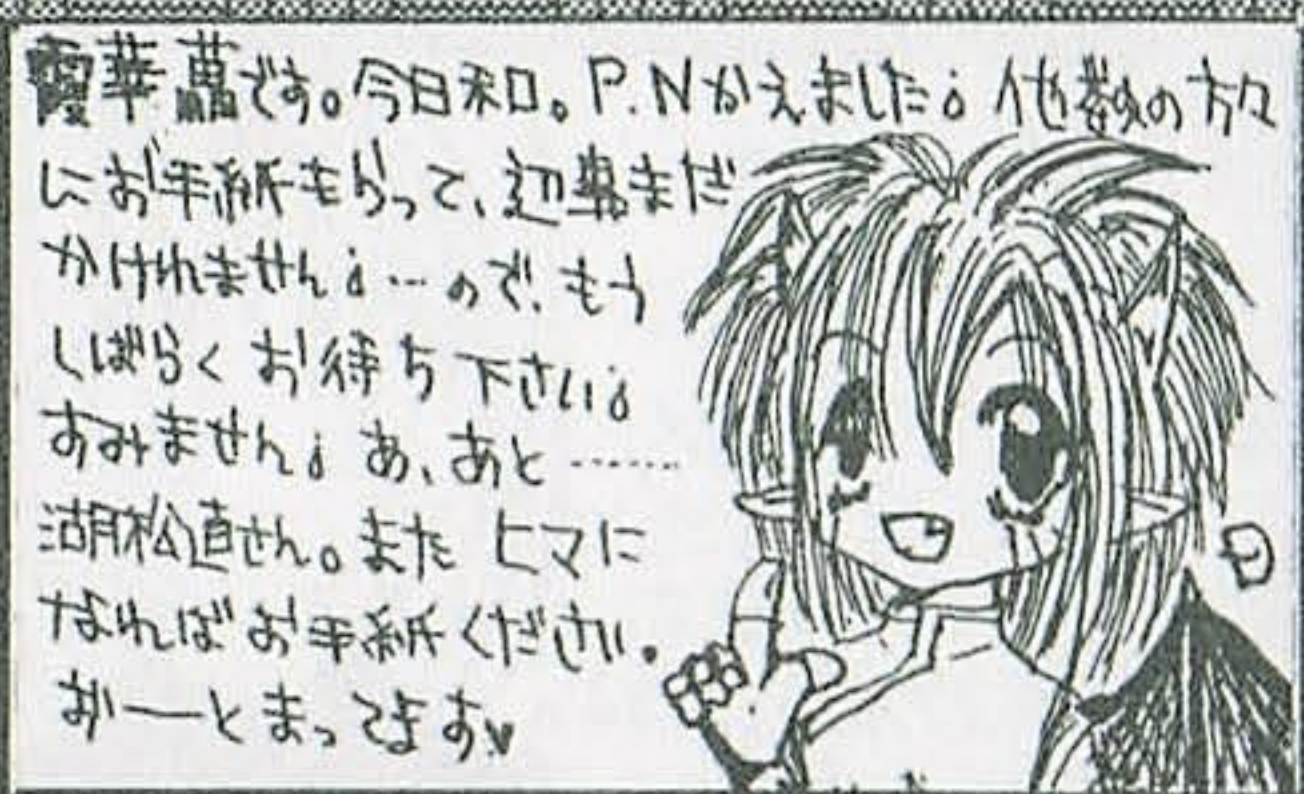 霞華菖です。今日和。P.Nかえました。他数の方々
にお手紙もらって、返事まだ
かけれません。…ので、もう
しばらくお待ち下さい。
すみません。あ、あと……
湖松直せん。また ヒマに
なればお手紙ください。
ずーーとまってます♥